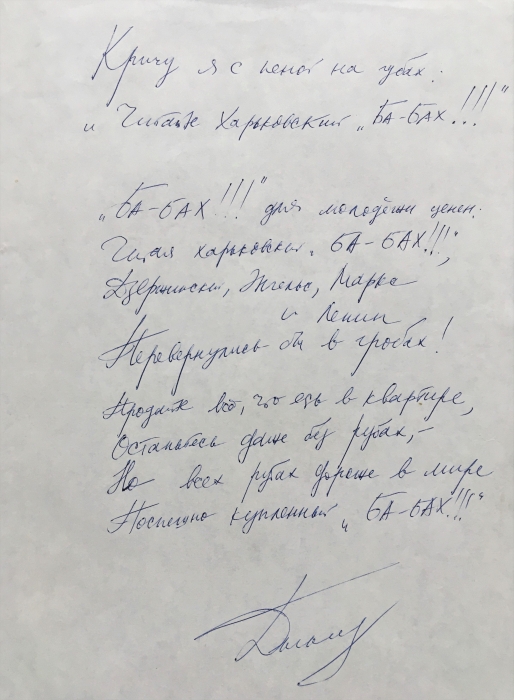 Кричу я с пеной на губах:
„Читайте Харьковский „БА-БАХ!!!"
„БА-БАХ!!!" для молодёжи ценен:
Читая харьковский „БА-БАХ!!!",
Дзержинский, Энгельс, Маркс
и Ленин
Перевернулись бы в гробах!
Продайте всё, что есть в квартире,
Останьтесь даже без рубах,–
Но всех рубах дороже в мире
Поспешно купленный „БА-БАХ!!!"